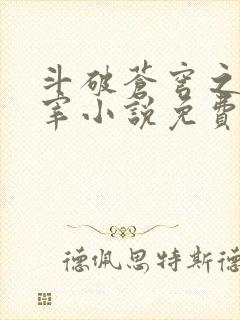 斗破蒼穹之
宰小說免費
德佩思特斯德